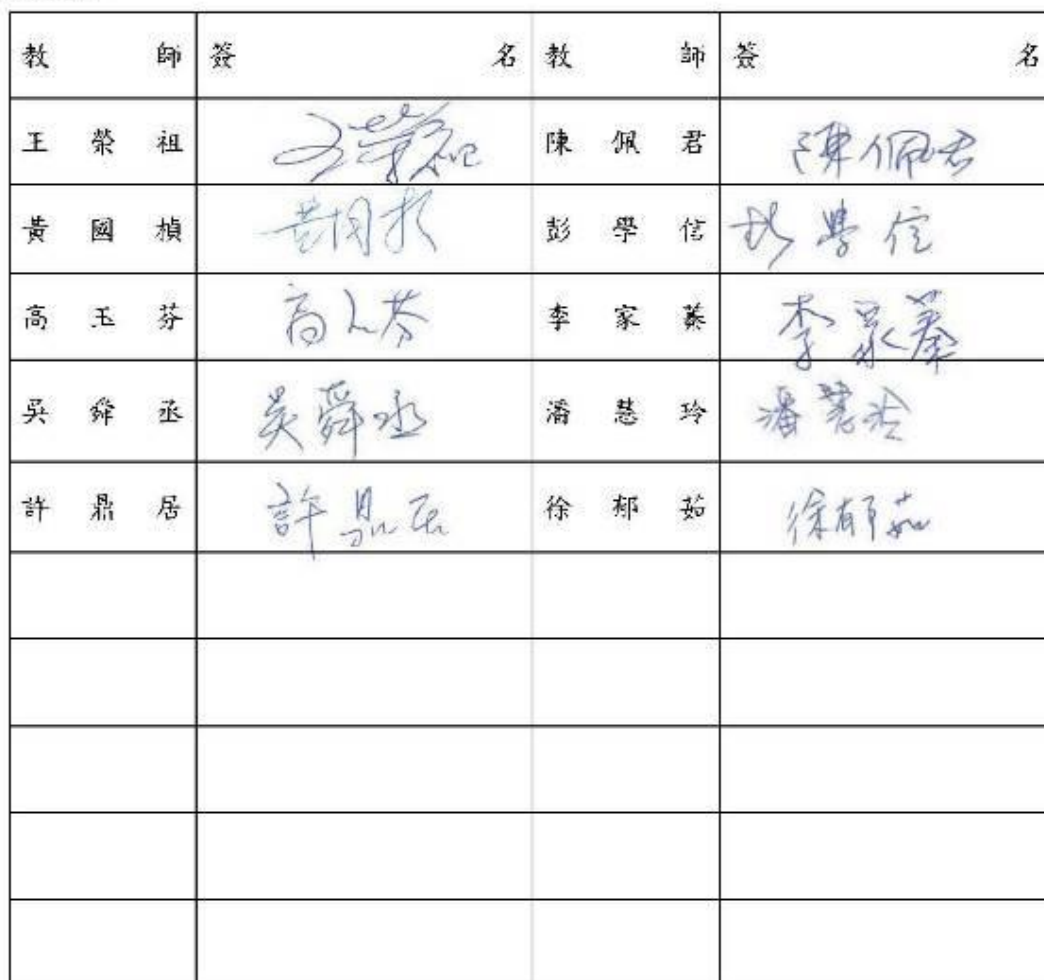 教師 簽名 教師 簽名
王榮祖 王榮祖 陳佩君 陳佩君
黃國楨 黃國楨 彭學信 彭學信
高玉芬 高玉芬 李家蓁 李家蓁
吳舜丞 吳舜丞 潘慧玲 潘慧玲
許鼎居 許鼎居 徐郁茹 徐郁茹